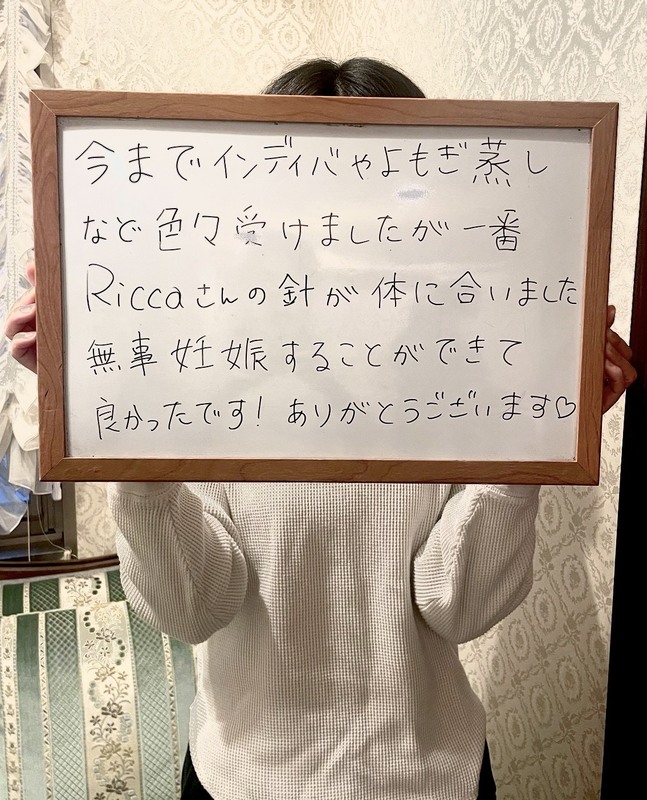 今までインディバやよもぎ蒸し
など色々受けましたが一番
Riccaさんの針が体に合いました
無事妊娠することができて
良かったです！ありがとうございます♡